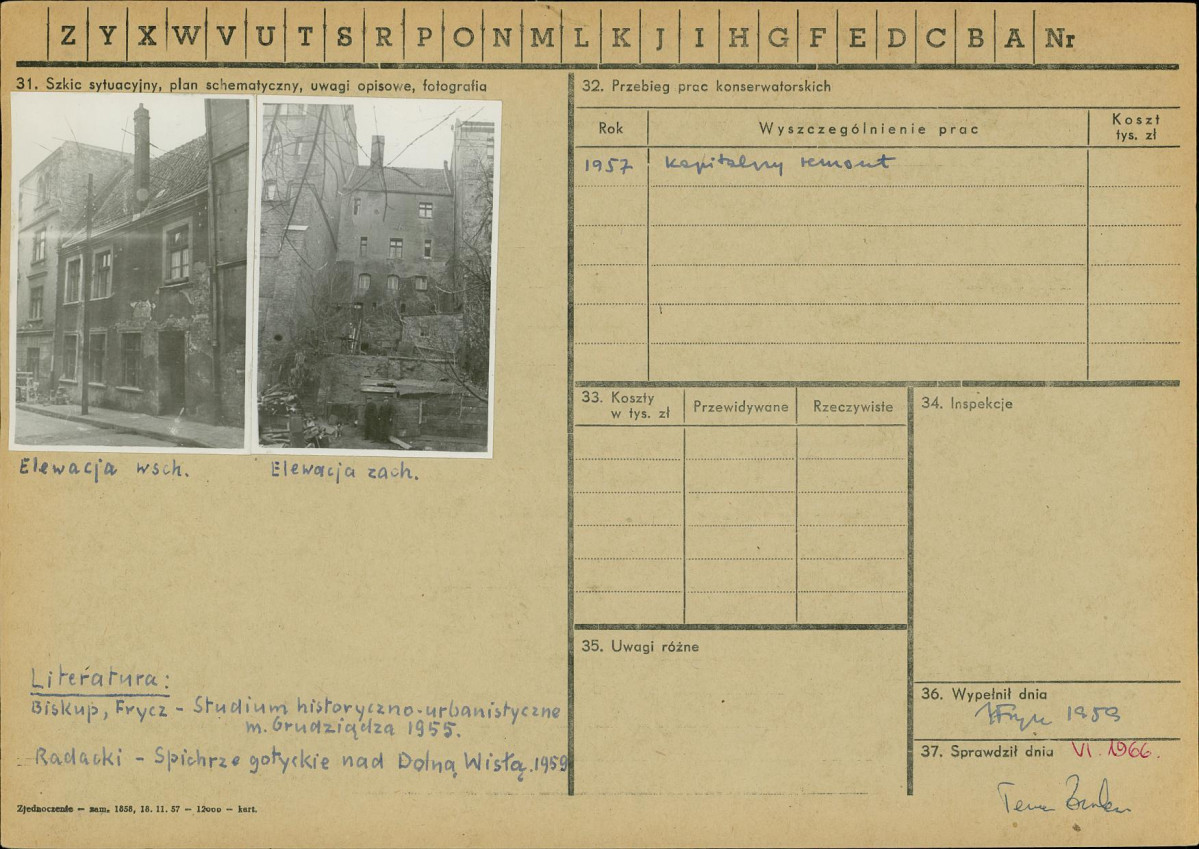 Z Y X W V U T S R P O N M L K J I H G F E D C B A Nr
31. Szkic sytuacyjny, plan schematyczny, uwagi opisowe, fotografia
Elewacja wsch.
Elewacja zach.
Literatura:
Biskup, Frycz - Studium historyczno-urbanistyczne
m. Grudziądza 1955.
Radacki - Spichrze gotyckie nad Dolną Wisłą. 1959
Zjednoczenie — zam. 1858, 18. 11. 57 — 12000 — kart.
32. Przebieg prac konserwatorskich
Rok
Wyszczególnienie prac
Koszt
tys. zł
1957 kapitalny remont
33. Koszty
w tys. zł
Przewidywane
Rzeczywiste
34. Inspekcje
35. Uwagi różne
36. Wypełnił dnia
1959
37. Sprawdził dnia VI. 1966.